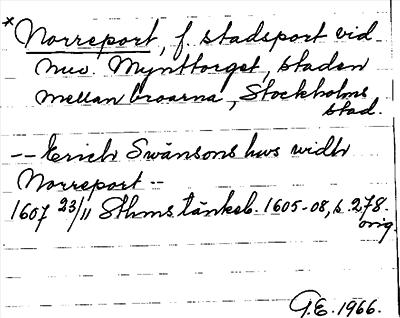 *Norreport, f. stadsport vid
nuv. Mynttorget, staden
mellan broarna, Stockholms
stad.
-- Erich Swänsons hws widh
Norreport --
1607 23/11 Sthms tänkeb. 1605-08, s. 278.
orig.
G.E. 1966.